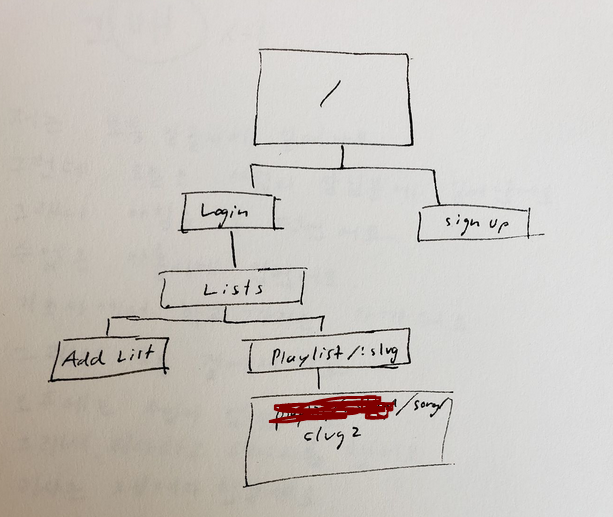 /
Login
sign up
Lists
Add List
Playlist/:slug
/song/
slug2